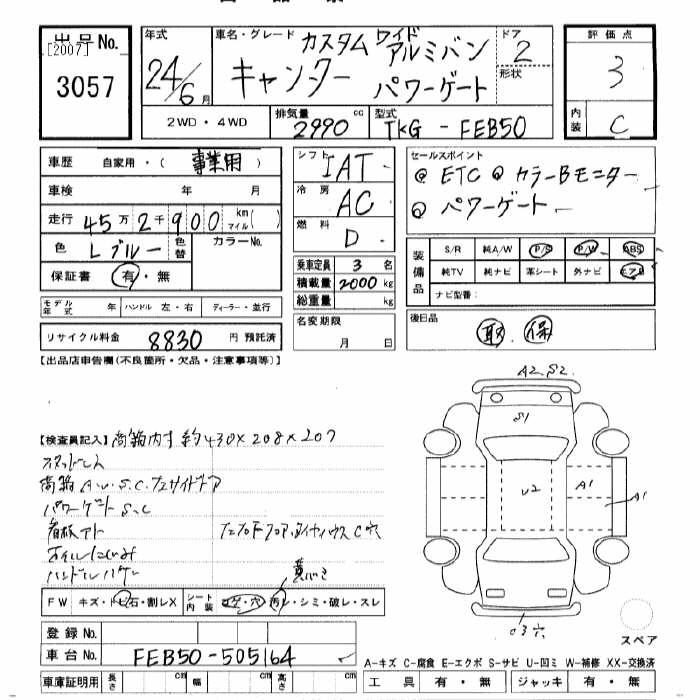 出品No. [2007] 3057
年式 24/6月
車名・グレード カスタム ワイド アルミバン
キャンター パワーゲート
ドア 2
形状
評価点 3
内装 C
2WD・4WD
排気量 2990 cc
型式 TKG-FEB50
車歴 自家用・(事業用)
車検 年 月
走行 45万2千900 km マイル( )
色 Lブルー 色替 カラーNo.
保証書 有・無
モデル年式 年 ハンドル 左・右 ディーラー・並行
リサイクル料金 8830 円 預託済
シフト IAT
冷房 AC
燃料 D
乗車定員 3 名
積載量 2000 kg
総重量 kg
名変期限 月 日
セールスポイント
@ ETC @ カラーBモニター
@ パワーゲート
装備品 S/R 純A/W P/S P/W ABS
純TV 純ナビ 革シート 外ナビ エアB
ナビ型番:
後日品
取 保
【出品店申告欄(不良箇所・欠品・注意事項等)】
【検査員記入】 荷箱内寸 約430×208×207
スタッドレス
荷箱 A.W.S.C.
パワーゲート S.C
看板アト
ハンドル
FW キズ・トビ石・割レX
シート内装 コゲ・穴 汚レ・シミ・破レ・スレ
登録No.
車台No. FEB50-505164
車庫証明用 長さ cm 幅 cm 高さ cm
A2 S2
S1
U2
A1
A1
C3 穴
スペア
A-キズ C-腐食 E-エクボ S-サビ U-凹ミ W-補修 XX-交換済
工具 有・無 ジャッキ 有・無